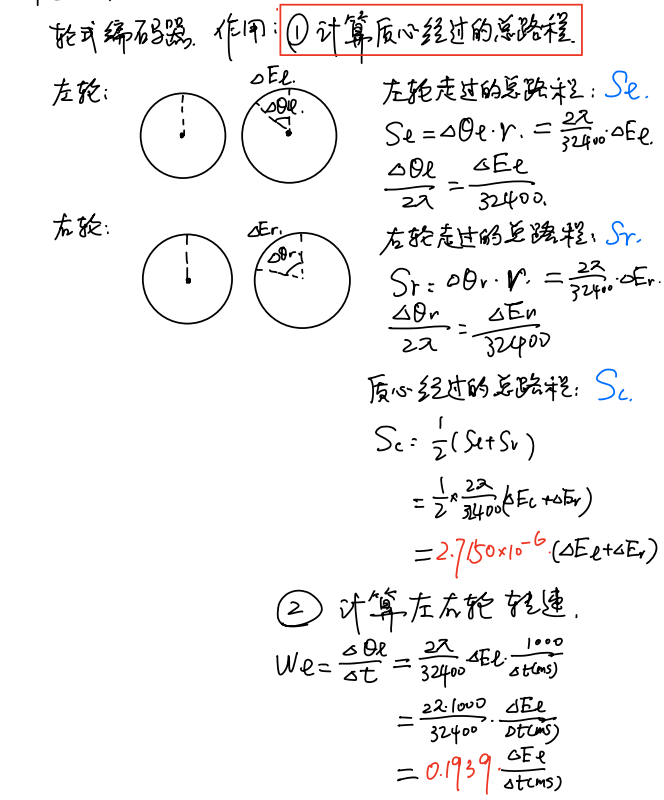 轮式编码器. 作用: ① 计算质心经过的总路程.
左轮:
ΔEl.
Δθl
左轮走过的总路程: Sl.
Sl = Δθl · r. = 2π/32400 · ΔEl.
Δθl/2π = ΔEl/32400.
右轮:
ΔEr.
Δθr
右轮走过的总路程: Sr.
Sr = Δθr · r. = 2π/32400 · ΔEr.
Δθr/2π = ΔEr/32400
质心经过的总路程: Sc.
Sc = 1/2 (Sl+Sr)
= 1/2 × 2π/32400 (ΔEl+ΔEr)
= 2.7150×10⁻⁶ · (ΔEl+ΔEr)
② 计算左右轮转速.
Wl = Δθl/Δt = 2π/32400 ΔEl · 1000/Δt(ms)
= 2π·1000/32400 · ΔEl/Δt(ms)
= 0.1939 · ΔEl/Δt(ms)